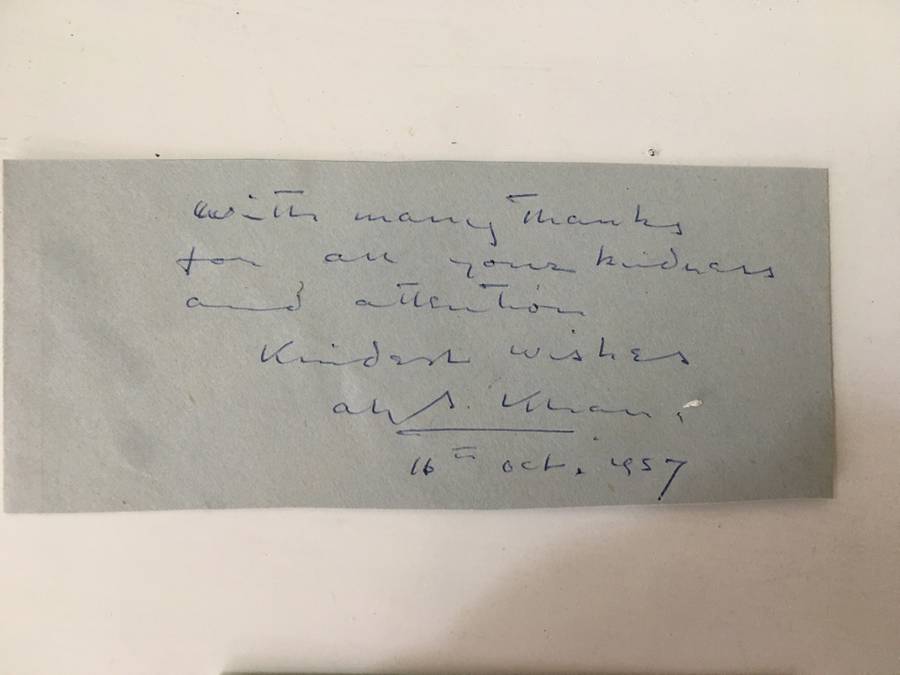 With many thanks
for all your kindness
and attention
Kindest wishes
Aly S. Khan.
16th Oct. 1957